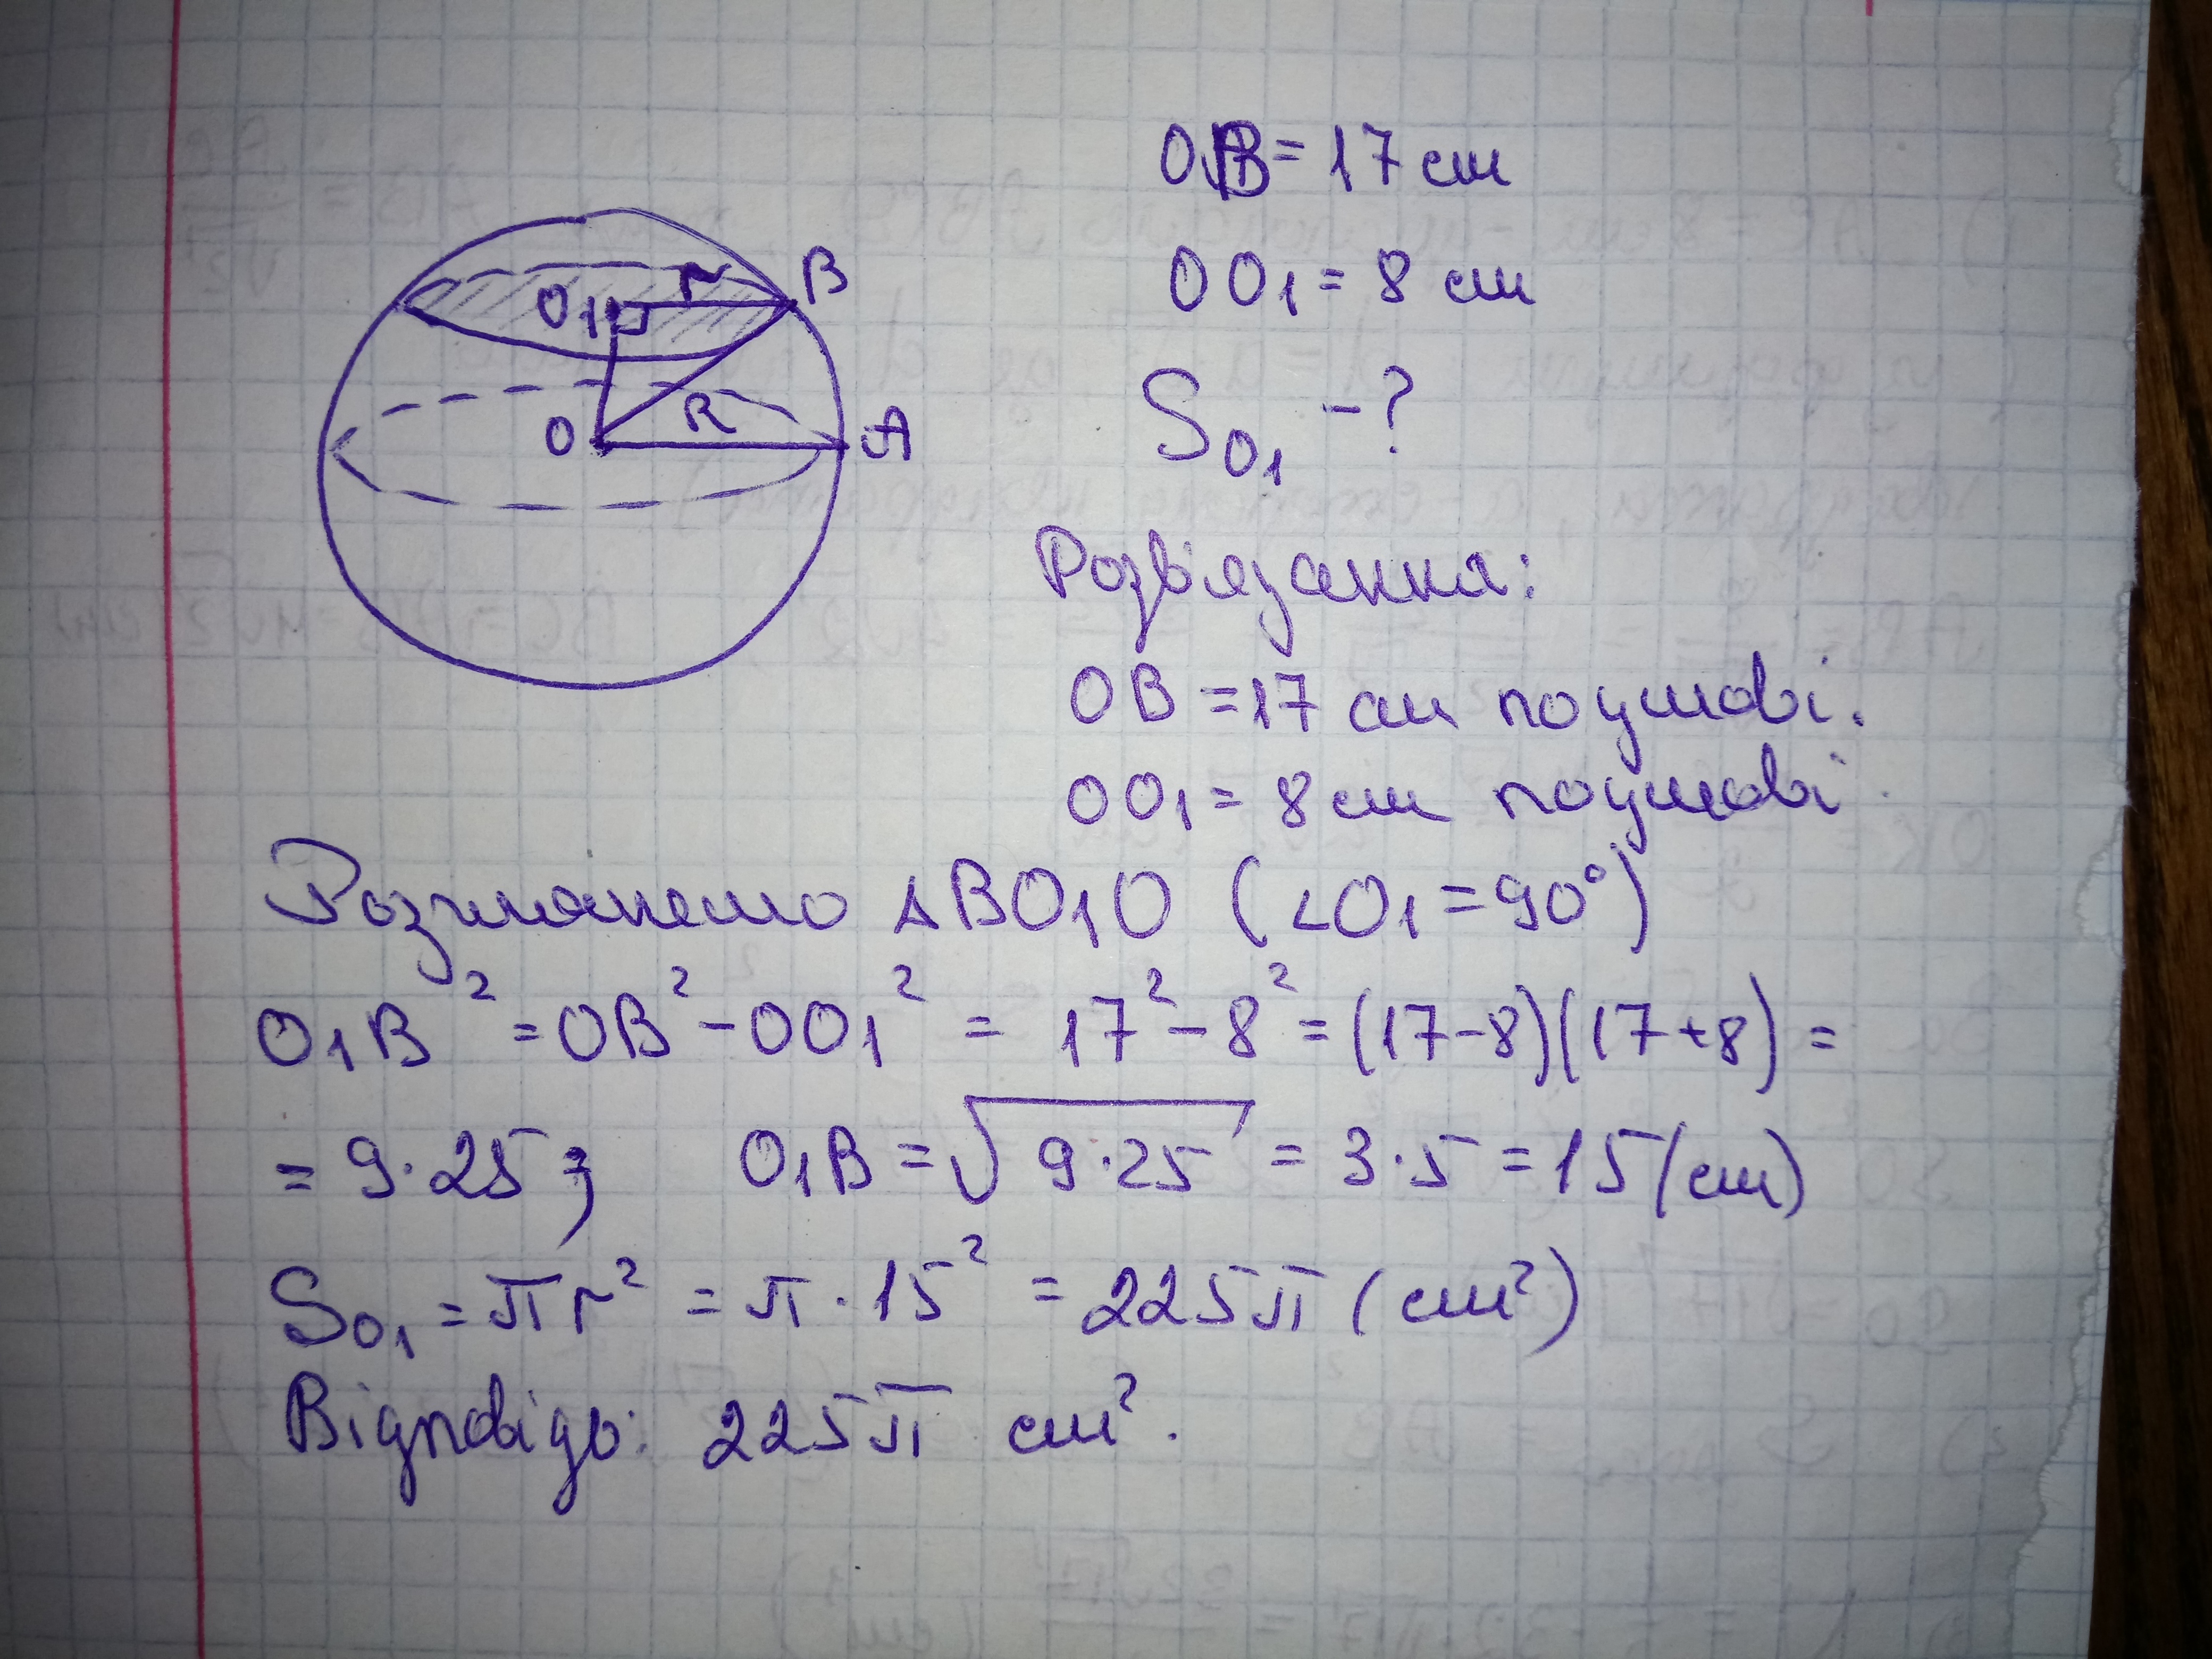 OB = 17 см
OO₁ = 8 см
S₀₁ - ?
r
B
O₁
R
O
A
Розвязання:
OB = 17 см по умові.
OO₁ = 8 см по умові.
Розглянемо ΔBO₁O (∠O₁ = 90°)
O₁B² = OB² - OO₁² = 17² - 8² = (17-8)(17+8) =
= 9·25; O₁B = √9·25 = 3·5 = 15 (см)
S₀₁ = πr² = π·15² = 225π (см²)
Відповідь: 225π см².